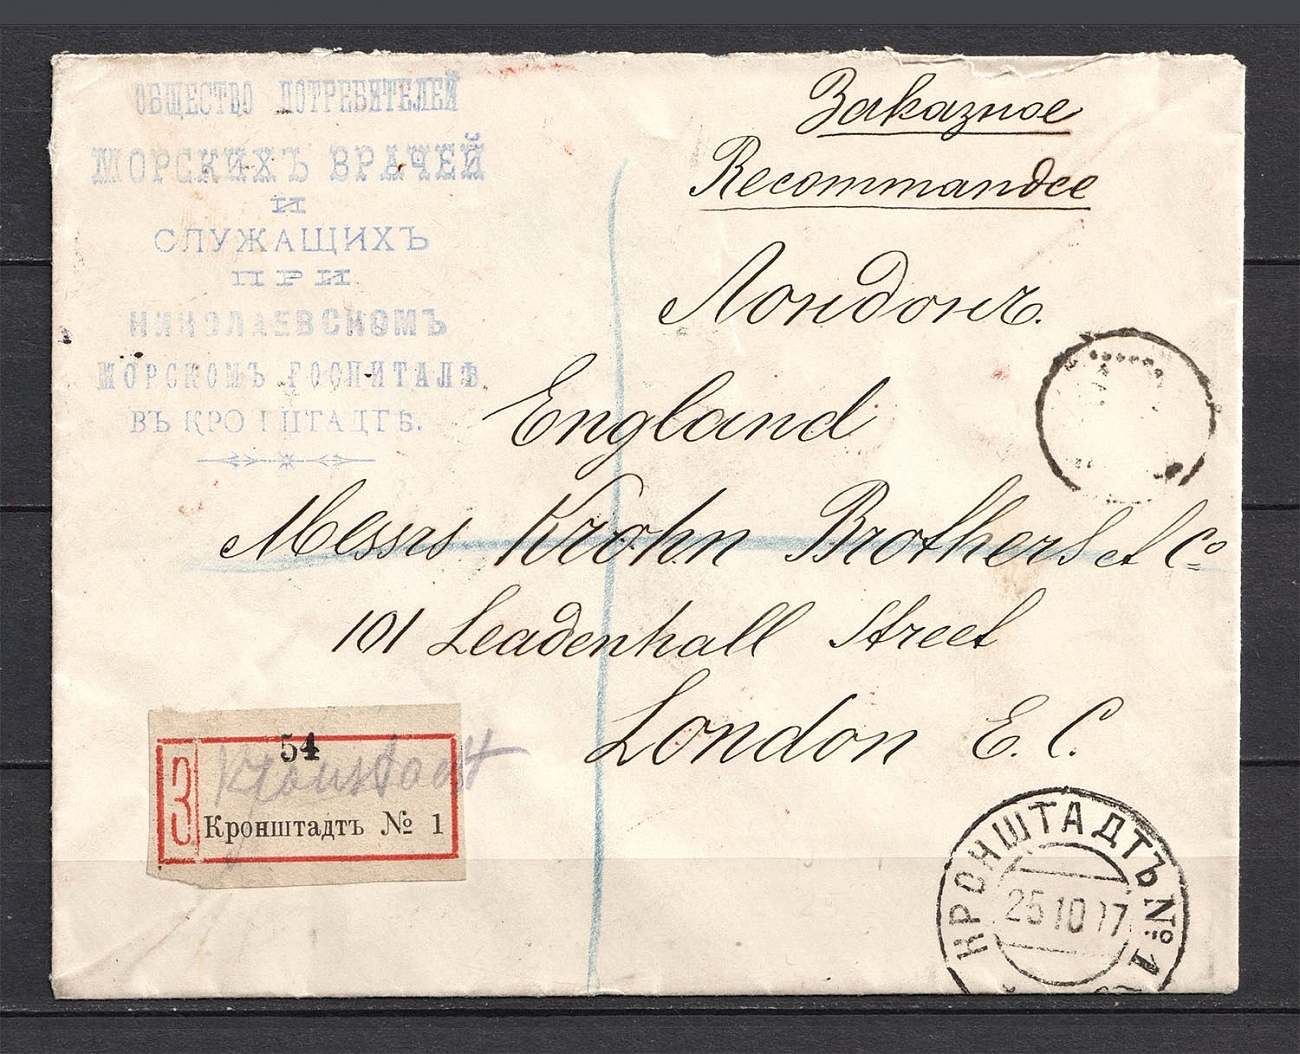 ОБЩЕСТВО ПОТРЕБИТЕЛЕЙ
МОРСКИХЪ ВРАЧЕЙ
И
СЛУЖАЩИХЪ
ПРИ
НИКОЛАЕВСКОМЪ
МОРСКОМЪ ГОСПИТАЛѢ
ВЪ КРОНШТАДТѢ.
Заказное
Recommandée
Лондонъ.
England
Messrs Krohn Brothers et Co
101 Leadenhall Street
London E. C.
54
Kronstadt
З Кронштадтъ № 1
КРОНШТАДТЪ № 1
25 10 17